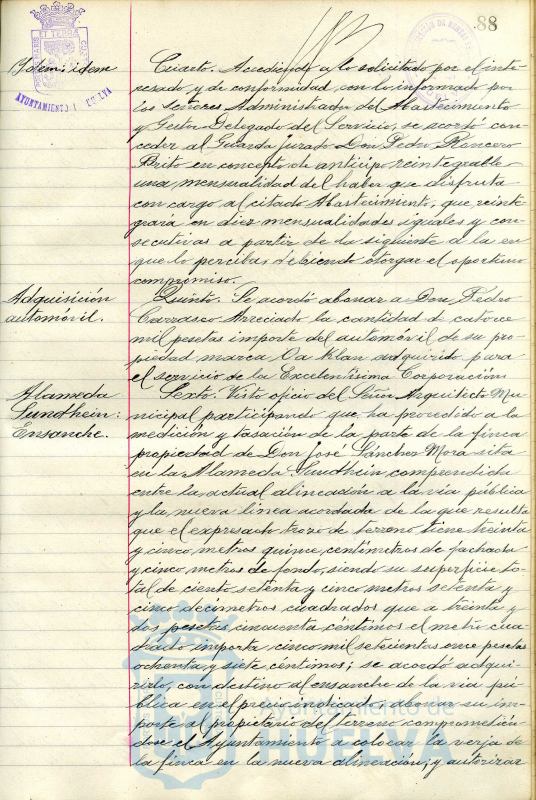 88
AYUNTAMIENTO HUELVA
Idem. idem
Cuarto. Accediendo a lo solicitado por el inte-
resado y de conformidad con lo informado por
los Señores Administrador del Abastecimiento
y Gestor Delegado del Servicio, se acordó con-
ceder al Guarda Jurado Don Pedro
Brito en concepto de anticipo reintegrable
una mensualidad del haber que disfruta
con cargo al citado Abastecimiento, que reinte-
grará en diez mensualidades iguales y con-
secutivas a partir de la siguiente a la en
que lo perciba, debiendo otorgar el oportuno
compromiso.
Adquisición
automóvil.
Quinto. Se acordó abonar a Don Pedro
Carrasco la cantidad de catorce
mil pesetas importe del automóvil de su pro-
piedad marca adquirido para
el servicio de la Excelentísima Corporación
Alameda
Sundhein:
Ensanche.
Sexto. Visto oficio del Señor Arquitecto Mu-
nicipal participando que ha procedido a la
medición y tasación de la parte de la finca
propiedad de Don José Sánchez Mora sita
en la Alameda Sundhein, comprendida
entre la actual alineación a la vía pública
y la nueva línea acordada de la que resulta
que el expresado trozo de terreno tiene treinta
y cinco metros quince centímetros de fachada
y cinco metros de fondo, siendo su superficie to-
tal de ciento setenta y cinco metros setenta y
cinco decímetros cuadrados que a treinta y
dos pesetas cincuenta céntimos el metro cua-
drado importa cinco mil setecientas once pesetas
ochenta y siete céntimos; se acordó adqui-
rirlo, con destino al ensanche de la vía pú-
blica en el precio indicado, abonar su im-
porte al propietario del terreno comprometién-
dose el Ayuntamiento a colocar la verja de
la finca en la nueva alineación; y autorizar
Ayuntamiento de
HUELVA